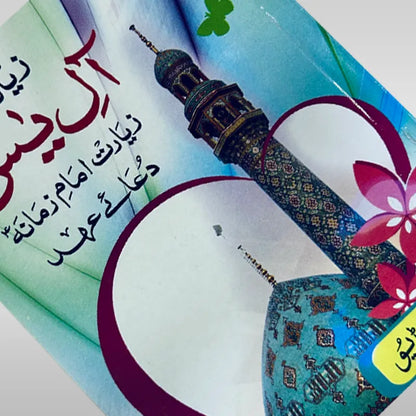 زیارت
آلِ یٰس
زیارت امامِ زمانہؑ
دُعائے عہد